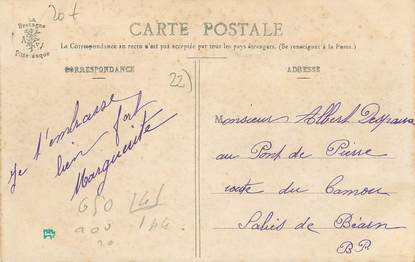 20f
La
Bretagne
Pittoresque
CARTE POSTALE
La Correspondance au recto n'est pas acceptée par tous les pays étrangers. (Se renseigner à la Poste.)
CORRESPONDANCE
ADRESSE
22
Je t'embrasse
bien fort
Marguerite
Monsieur Albert
au Pont de Pierre
route du Camou
Saliès de Béarn
B.P.